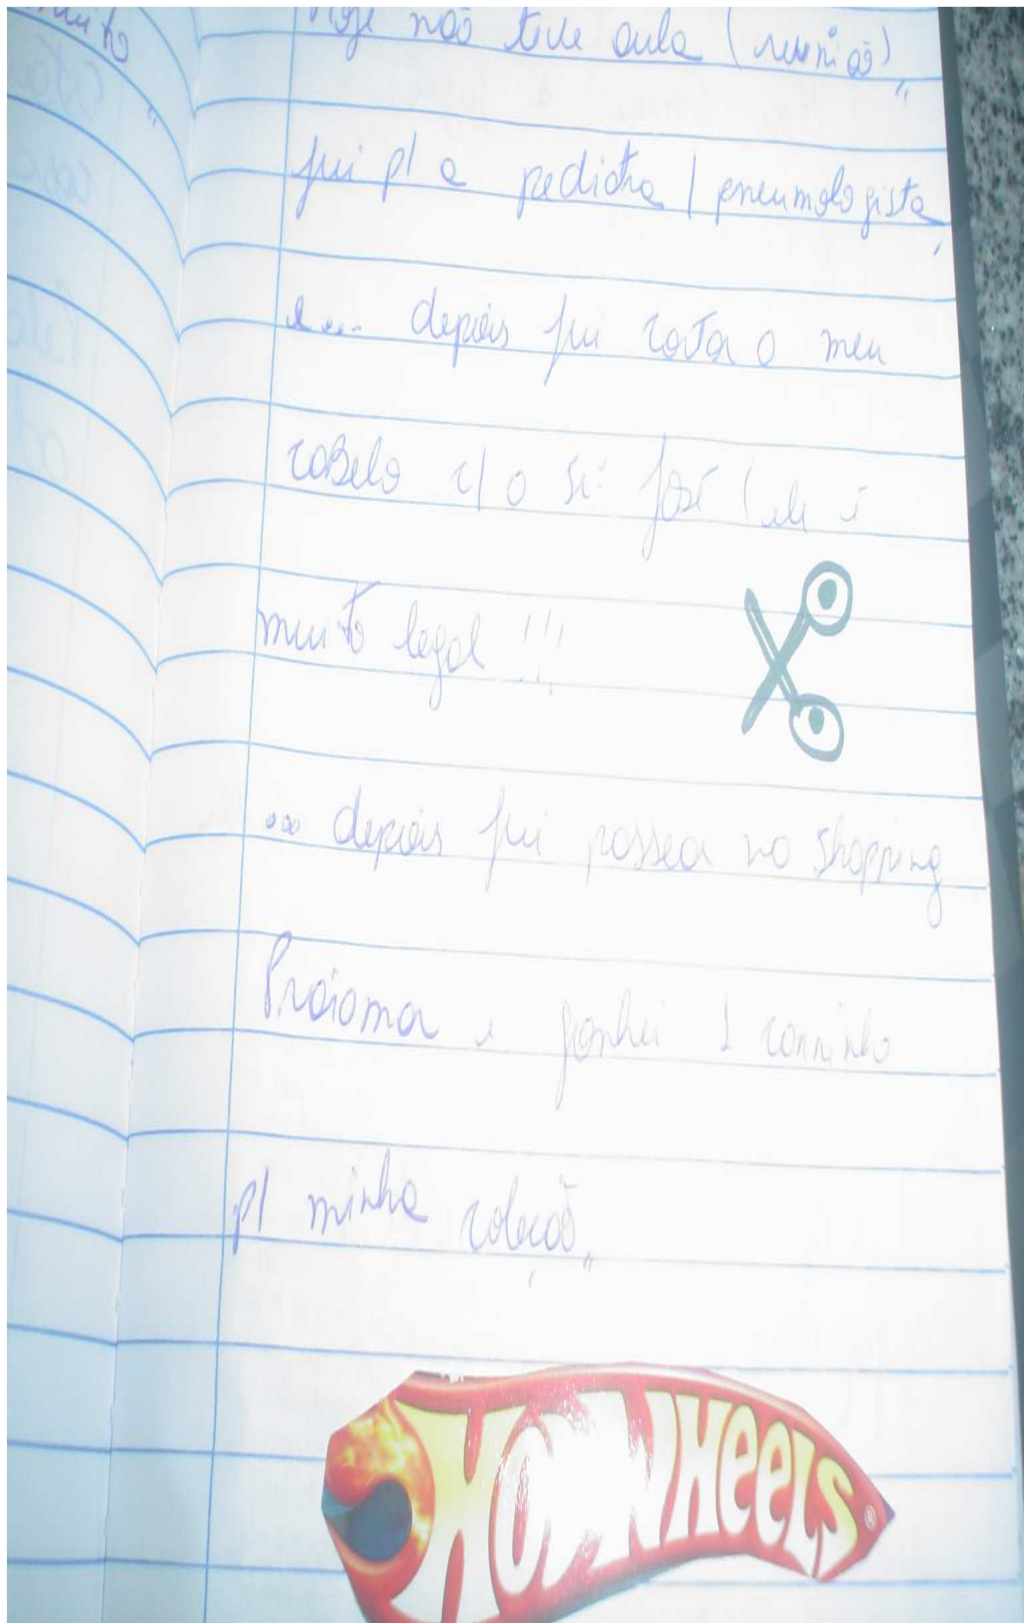 muito
Hoje não tive aula (reunião)
fui p/ a pediatra / pneumologista,
e... depois fui corta o meu
cabelo c/ o Sr José (ele é
muito legal!!!
... depois fui passear no Shopping
Praiamar e ganhei 1 carrinho
p/ minha coleção
HOT WHEELS